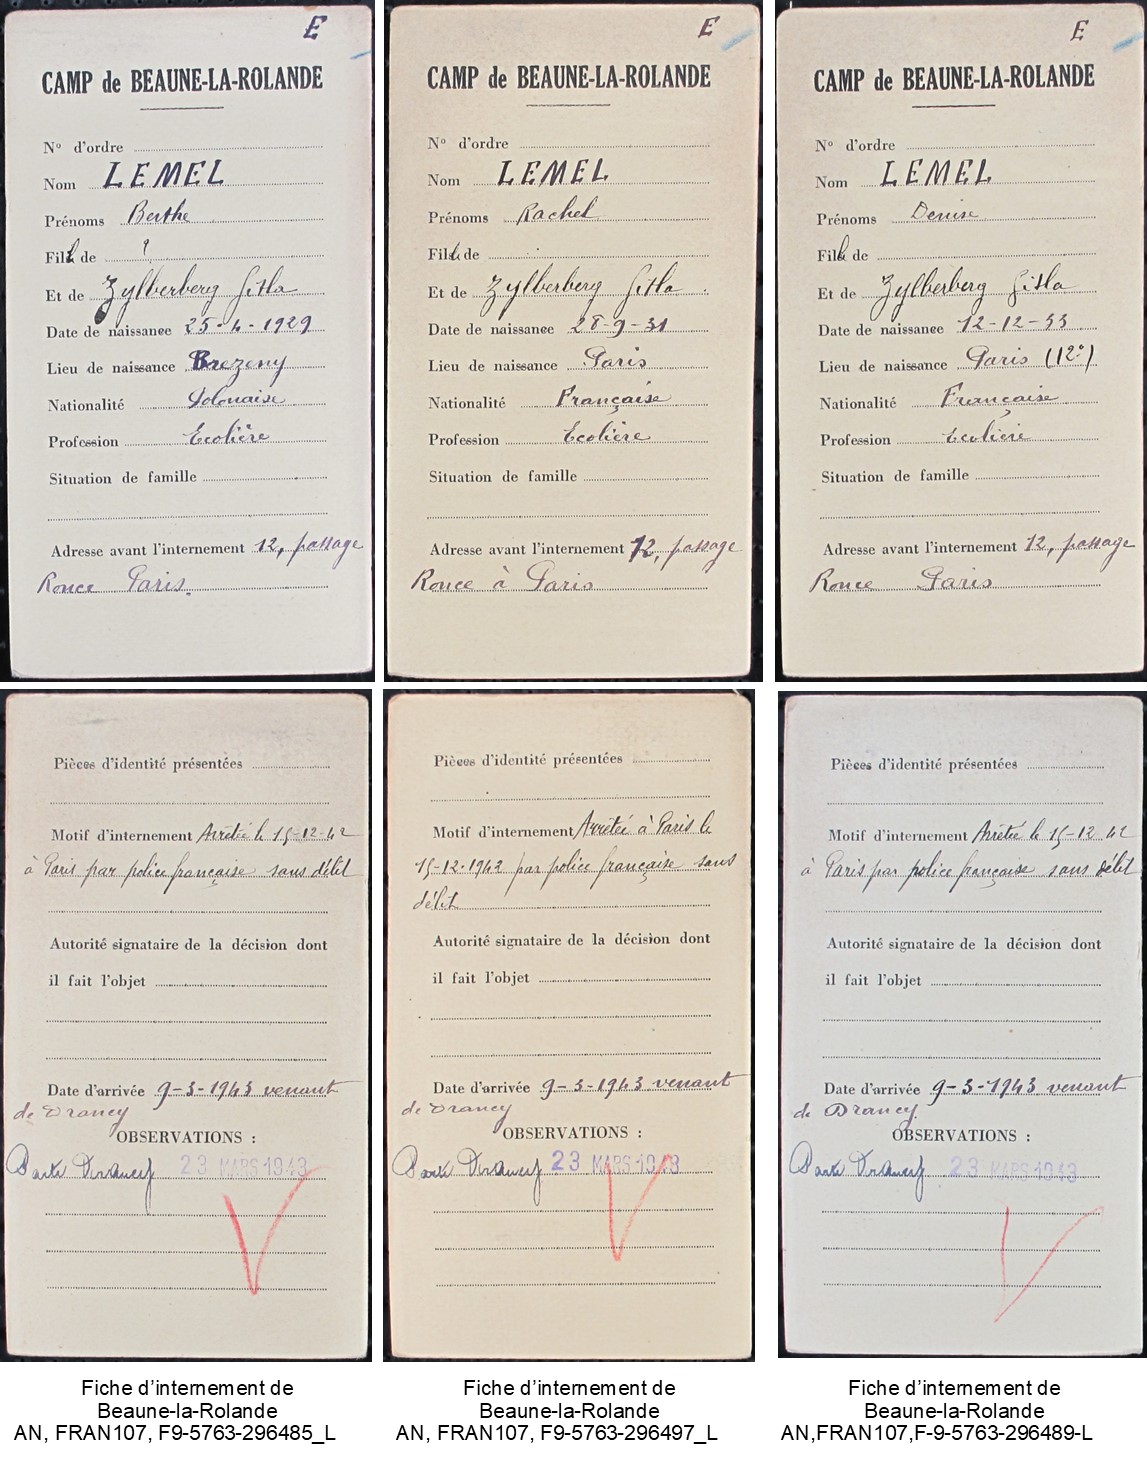 E
CAMP de BEAUNE-LA-ROLANDE
N° d'ordre
Nom LEMEL
Prénoms Berthe
Fille de ?
Et de Zylberberg Gitla
Date de naissance 25-4-1929
Lieu de naissance Brezeny
Nationalité Polonaise
Profession Ecolière
Situation de famille
Adresse avant l'internement 12, passage
Ronce Paris.
E
CAMP de BEAUNE-LA-ROLANDE
N° d'ordre
Nom LEMEL
Prénoms Rachel
Fille de
Et de Zylberberg Gitla
Date de naissance 28-9-31
Lieu de naissance Paris
Nationalité Française
Profession Ecolière
Situation de famille
Adresse avant l'internement 12, passage
Ronce à Paris
E
CAMP de BEAUNE-LA-ROLANDE
N° d'ordre
Nom LEMEL
Prénoms Denise
Fille de
Et de Zylberberg Gitla
Date de naissance 12-12-33
Lieu de naissance Paris (12°)
Nationalité Française
Profession Ecolière
Situation de famille
Adresse avant l'internement 12, passage
Ronce Paris
Pièces d'identité présentées
Motif d'internement Arrêtée le 15-12-42
à Paris par police française sans délit
Autorité signataire de la décision dont
il fait l'objet
Date d'arrivée 9-3-1943 venant
de Drancy
OBSERVATIONS :
Parti Drancy 23 MARS 1943
Pièces d'identité présentées
Motif d'internement Arrêtée à Paris le
15-12-1942 par police française sans
délit
Autorité signataire de la décision dont
il fait l'objet
Date d'arrivée 9-3-1943 venant
de Drancy
OBSERVATIONS :
Parti Drancy 23 MARS 1943
Pièces d'identité présentées
Motif d'internement Arrêtée le 15-12 42
à Paris par police française sans délit
Autorité signataire de la décision dont
il fait l'objet
Date d'arrivée 9-3-1943 venant
de Drancy
OBSERVATIONS :
Parti Drancy 23 MARS 1943
Fiche d'internement de
Beaune-la-Rolande
AN, FRAN107, F9-5763-296485_L
Fiche d'internement de
Beaune-la-Rolande
AN, FRAN107, F9-5763-296497_L
Fiche d'internement de
Beaune-la-Rolande
AN,FRAN107,F-9-5763-296489-L